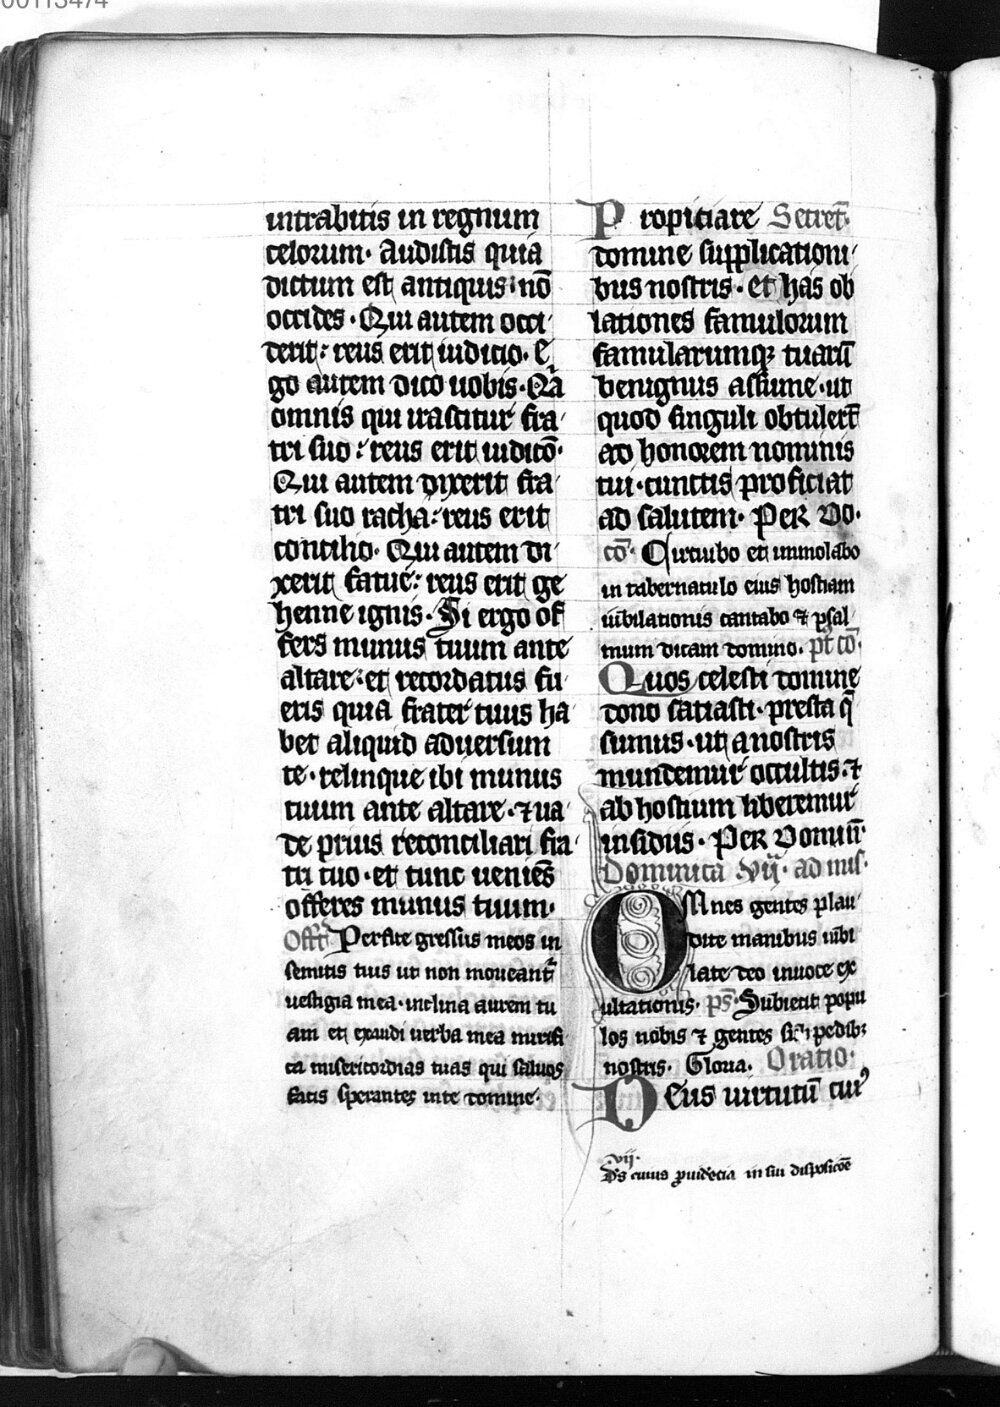 00113474
intrabitis in regnum
celorum· Audistis quia
dictum est antiquis: nō
occides· Qui autem occi
derit: reus erit iudicio· E
go autem dico uobis· Qa
omnis qui irascitur fra
tri suo: reus erit iudicō·
Qui autem dixerit fra
tri suo racha: reus erit
concilio· Qui autem di
xerit fatue: reus erit ge
henne ignis· Si ergo of
fers munus tuum ante
altare: et recordatus fu
eris quia frater tuus ha
bet aliquid aduersum
te· relinque ibi munus
tuum ante altare· ⁊ ua
de prius reconciliari fra
tri tuo· et tunc ueniēs
offeres munus tuum·
Offr̄ Perfice gressus meos in
semitis tuis ut non moueant̄
uestigia mea· inclina aurem tu
am et exaudi uerba mea mirifi
ca misericordias tuas qui saluos
facis sperantes inte domine·
Propiciare Secret̄·
domine supplicationi
bus nostris· et has ob
lationes famulorum
famularumqꝫ tuarū
benignus assume· ut
quod singuli obtulert̄
ad honorem nominis
tui· cunctis proficiat
ad salutem· Per do·
cō· Circuibo et immolabo
in tabernaculo eius hostiam
iubilationis cantabo ⁊ psal
mum dicam domino· pt̄ cō·
Quos celesti domine
dono satiasti· presta q̄
sumus· ut a nostris
mundemur occultis· ⁊
ab hostium liberemur
insidiis· Per Dominū·
Dominica vij· ad mis·
OMnes gentes plau
dite manibus iubi
late deo inuoce ex
ultationis· ps̄· Subiecit popu
los nobis ⁊ gentes s̄ pedibꝫ
nostris· Gloria· Oratio·
Deus uirtutū cui᾽
·vij·
Ds̄ cuius ꝓuidēcia in sui disposicōe